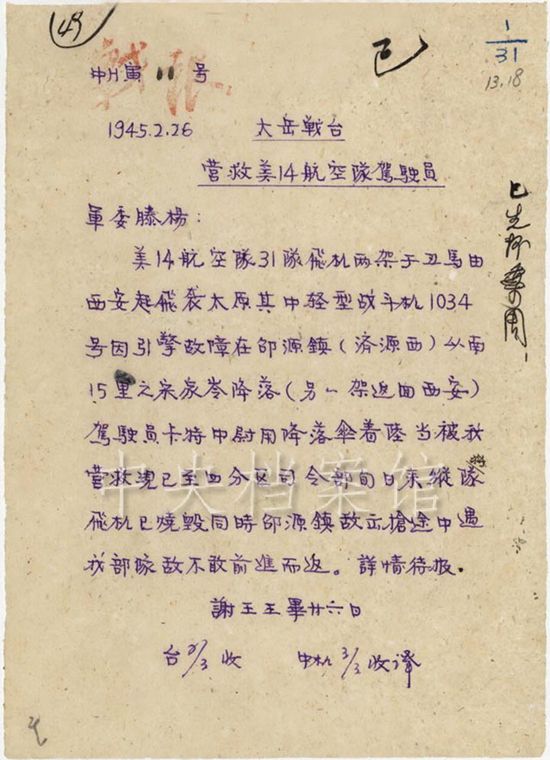 49
1
31
13.18
戰报
中川寅11号
1945.2.26 太岳戰台
营救美14航空隊駕駛員
軍委滕楊:
美14航空隊31隊飛机两架于丑馬由
西安起飛袭太原其中轻型战斗机1034
号因引擎故障在邵源鎮(済源西)以南
15里之宋家岺降落(另一架返回西安)
駕駛員卡特中尉用降落伞着陸当被我
营救現已至四分区司令部旬日來縱隊
飛机已燒毀同時邵源鎮敌出搶途中遇
我部隊敌不敢前進而返。詳情待报.
謝王王畢廿六日
台 3/3 收 中机 3/3 收譯
中央档案馆